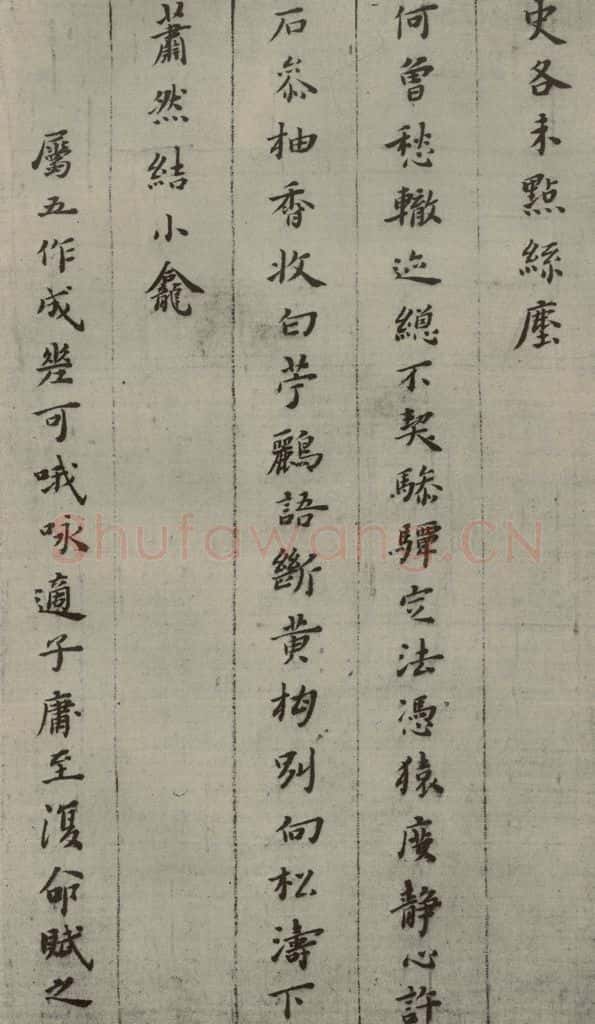 史各未點絲塵
何曾愁轍迹總不契驂驔定法憑猿度靜心許
石叅柚香收白苧鸝語斷黃枏別向松濤下
蕭然結小龕
屬五作成幾可哦咏適子庸至復命賦之
Shufawang.CN